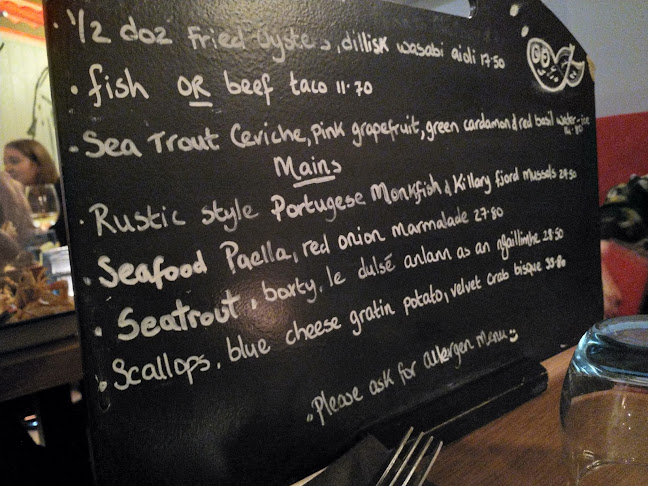 · 1/2 doz Fried Oysters, dillisk wasabi aioli 17·50
· fish OR beef taco 11·70
· Sea Trout Ceviche, pink grapefruit, green cardamon & red basil water-ice
Mains
· Rustic style Portugese Monkfish & Killary fjord mussels 29·50
· Seafood Paella, red onion marmalade 27·80
· Seatrout, barty, le dulsé anlann as an ngaillimhe 28·50
· Scallops, blue cheese gratin potato, velvet crab bisque 33·80
· Please ask for allergen Menu